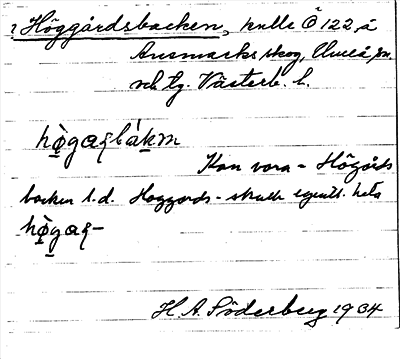 ? Höggårdsbacken, kulle Ö 122, å
Ansmarks skog, Umeå sn.
och tg. Västerb. l.
hø̀gaʂbákm
Kan vara = Högårds
backen l.d. Hoggards- skulle egentl. heta
hø̀gaʂ-
H. A. Söderberg 1934